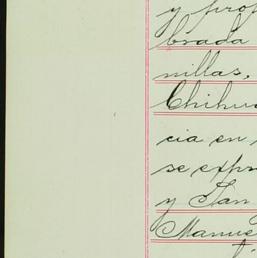 y prop
brada
nillas,
Chihua
cia en
se expr
y San
Manue